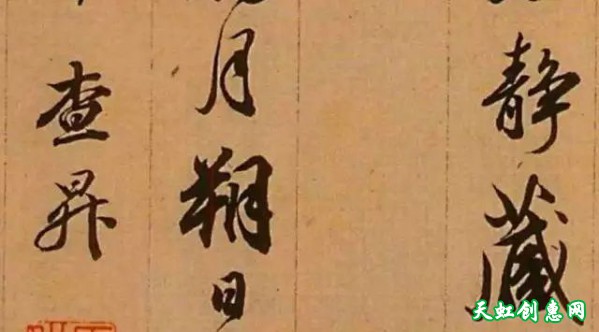 静藏
月朔日
查昇
天虹创惠网